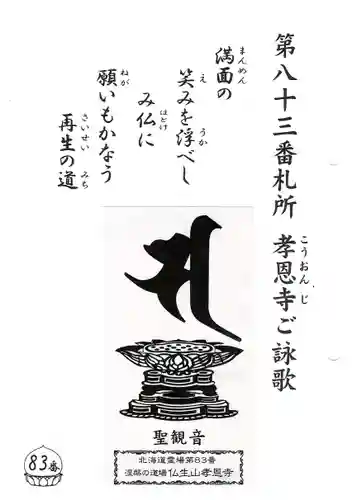 第八十三番札所 孝恩寺ご詠歌
こうおんじ
満面の
まんめん
笑みを浮べし
え うか
み仏に
ほとけ
願いもかなう
ねが
再生の道
さいせい みち
聖観音
北海道霊場第83番
涅槃の道場 仏生山孝恩寺
83番